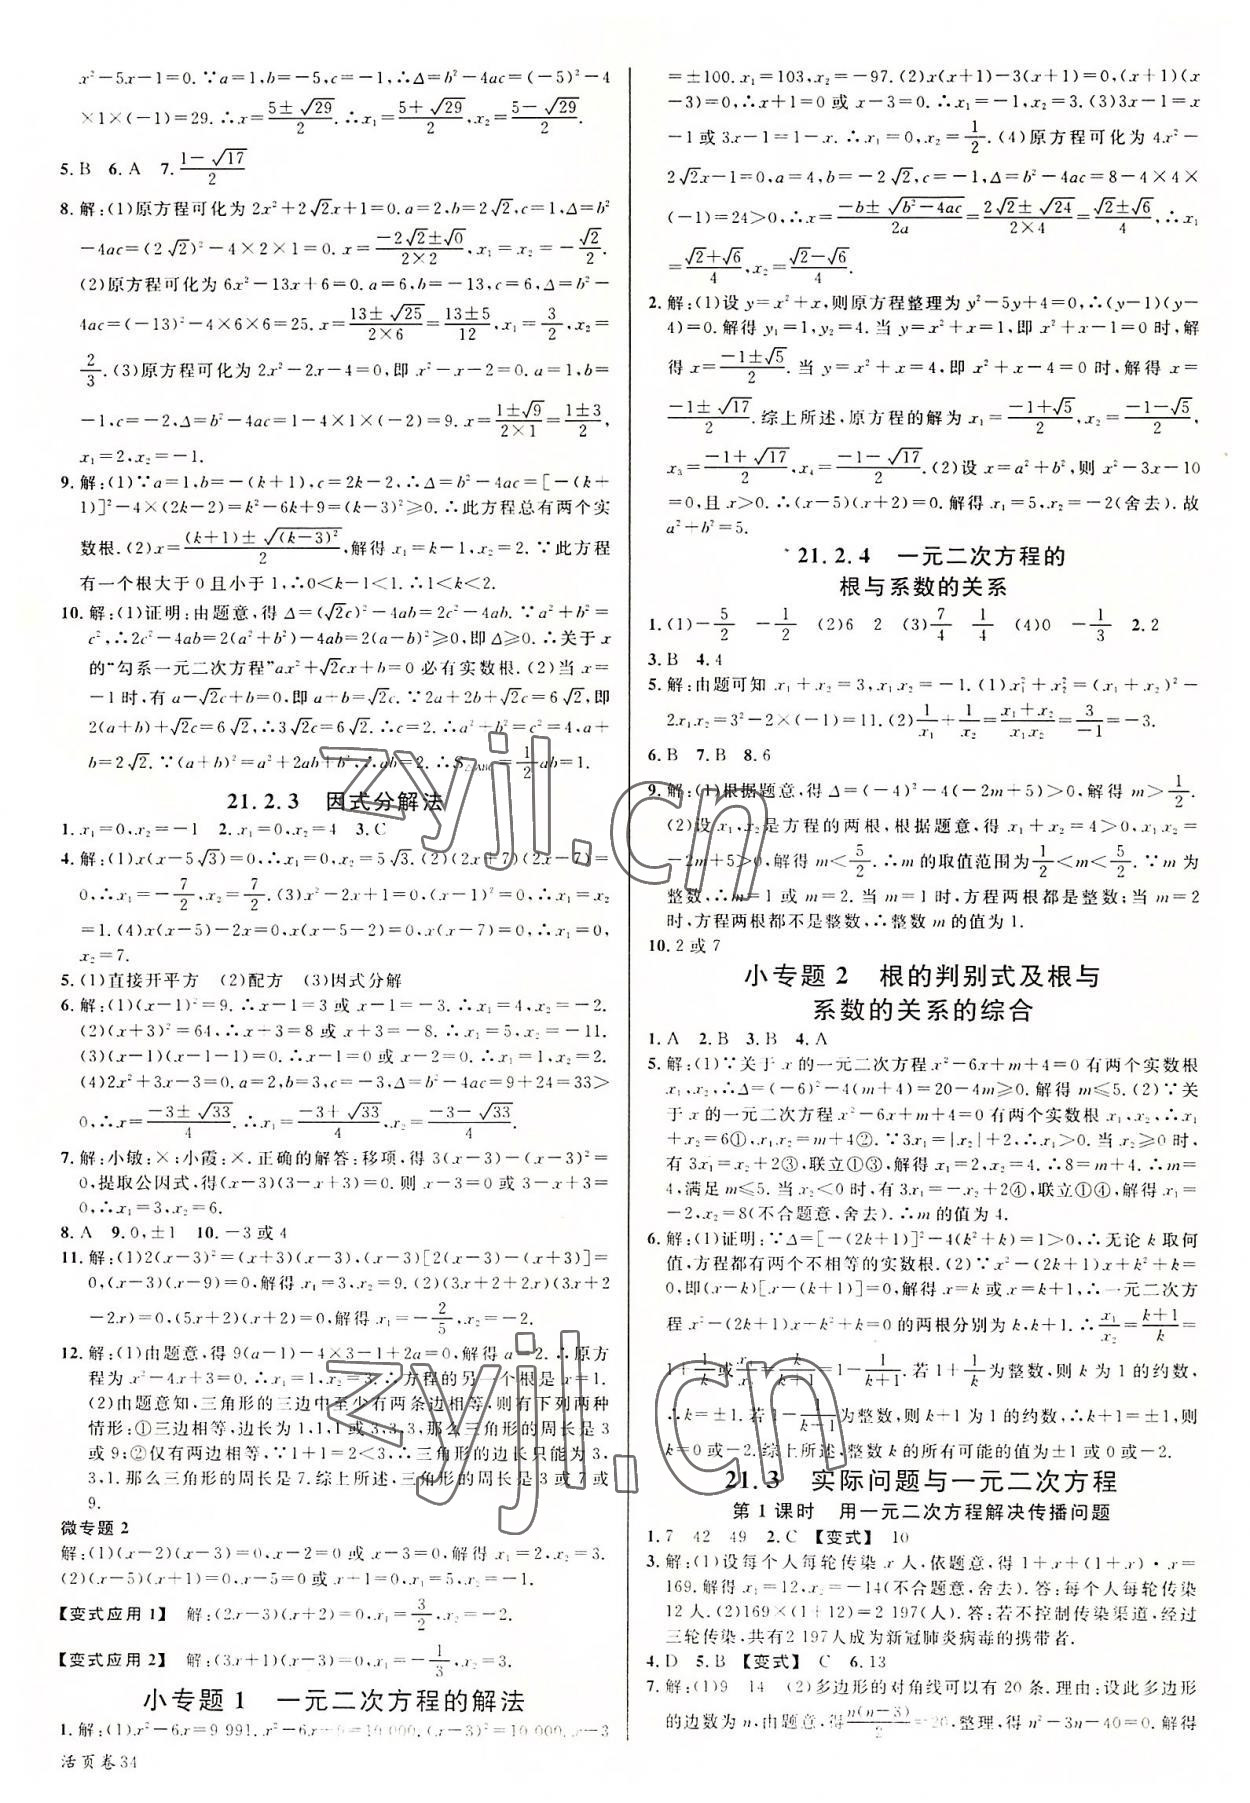 x²-5x-1=0.∵a=1,b=-5,c=-1,∴Δ=b²-4ac=(-5)²-4
×1×(-1)=29.∴x=(5±√29)/2.∴x₁=(5+√29)/2,x₂=(5-√29)/2.
5.B 6.A 7.(1-√17)/2
8.解:(1)原方程可化为2x²+2√2x+1=0.a=2,b=2√2,c=1,Δ=b²
-4ac=(2√2)²-4×2×1=0.x=(-2√2±√0)/(2×2),x₁=x₂=-√2/2.
(2)原方程可化为6x²-13x+6=0.a=6,b=-13,c=6,Δ=b²-
4ac=(-13)²-4×6×6=25.x=(13±√25)/(2×6)=(13±5)/12,x₁=3/2,x₂=
2/3.(3)原方程可化为2x²-2x-4=0,即x²-x-2=0.a=1,b=
-1,c=-2,Δ=b²-4ac=1-4×1×(-2)=9.x=(1±√9)/(2×1)=(1±3)/2,
x₁=2,x₂=-1.
9.解:(1)∵a=1,b=-(k+1),c=2k-2,∴Δ=b²-4ac=[-(k+
1)]²-4×(2k-2)=k²-6k+9=(k-3)²≥0.∴此方程总有两个实
数根.(2)x=((k+1)±√(k-3)²)/2,解得x₁=k-1,x₂=2.∵此方程
有一个根大于0且小于1,∴0<k-1<1.∴1<k<2.
10.解:(1)证明:由题意,得Δ=(√2c)²-4ab=2c²-4ab.∵a²+b²=
c²,∴2c²-4ab=2(a²+b²)-4ab=2(a-b)²≥0,即Δ≥0.∴关于x
的“勾系一元二次方程”ax²+√2cx+b=0必有实数根.(2)当x=
-1时,有a-√2c+b=0,即a+b=√2c.∵2a+2b+√2c=6√2,即
2(a+b)+√2c=6√2,∴3√2c=6√2.∴c=2.∴a²+b²=c²=4,a+
b=2√2.∵(a+b)²=a²+2ab+b²,∴ab=2.∴S△ABC=1/2ab=1.
21.2.3 因式分解法
1.x₁=0,x₂=-1 2.x₁=0,x₂=4 3.C
4.解:(1)x(x-5√3)=0.∴x₁=0,x₂=5√3.(2)(2x+7)(2x-7)=
0,∴x₁=-7/2,x₂=7/2.(3)x²-2x+1=0,(x-1)²=0.∴x₁=x₂
=1.(4)x(x-5)-2x=0,x(x-5-2)=0,x(x-7)=0,∴x₁=0,
x₂=7.
5.(1)直接开平方 (2)配方 (3)因式分解
6.解:(1)(x-1)²=9.∴x-1=3或x-1=-3.∴x₁=4,x₂=-2.
(2)(x+3)²=64,∴x+3=8或x+3=-8.∴x₁=5,x₂=-11.
(3)(x-1)(x-2)=0,∴x-1=0或x-2=0.∴x₁=1,x₂=2.
(4)2x²+3x-3=0.a=2,b=3,c=-3,Δ=b²-4ac=9+24=33>
0,∴x=(-3±√33)/4.∴x₁=(-3+√33)/4,x₂=(-3-√33)/4.
7.解:小敏:×;小霞:×.正确的解答:移项,得3(x-3)-(x-3)²=
0,提取公因式,得(x-3)(3-x+3)=0.则x-3=0或3-x+3=
0,∴x₁=3,x₂=6.
8.A 9.0,±1 10.-3或4
11.解:(1)2(x-3)²=(x+3)(x-3),(x-3)[2(x-3)-(x+3)]=
0,(x-3)(x-9)=0,解得x₁=3,x₂=9.(2)(3x+2+2x)(3x+2
-2x)=0,(5x+2)(x+2)=0,解得x₁=-2/5,x₂=-2.
12.解:(1)由题意,得9(a-1)-4×3-1+2a=0,解得a=2.∴原方
程为x²-4x+3=0.∴x₁=1,x₂=3.∴方程的另一个根是x=1.
(2)由题意知,三角形的三边中至少有两条边相等,则有下列两种
情形:①三边相等,边长为1,1,1或3,3,3,那么三角形的周长是3
或9;②仅有两边相等,∵1+1=2<3,∴三角形的边长只能为3,
3,1.那么三角形的周长是7.综上所述,三角形的周长是3或7或
9.
微专题2
解:(1)(x-2)(x-3)=0,x-2=0或x-3=0,解得x₁=2,x₂=3.
(2)(x-5)(x+1)=0,x-5=0或x+1=0,x₁=5,x₂=-1.
【变式应用1】 解:(2x-3)(x+2)=0,x₁=3/2,x₂=-2.
【变式应用2】 解:(3x+1)(x-3)=0,x₁=-1/3,x₂=3.
小专题1 一元二次方程的解法
1.解:(1)x²-6x=9 991.x²-6x+9=10 000,(x-3)²=10 000,x-3
活页卷34
=±100.x₁=103,x₂=-97.(2)x(x+1)-3(x+1)=0,(x+1)(x
-3)=0,∴x+1=0或x-3=0.∴x₁=-1,x₂=3.(3)3x-1=x
-1或3x-1=1-x.∴x₁=0,x₂=1/2.(4)原方程可化为4x²-
2√2x-1=0,a=4,b=-2√2,c=-1,Δ=b²-4ac=8-4×4×
(-1)=24>0,∴x=(-b±√(b²-4ac))/2a=(2√2±√24)/(2×4)=(√2±√6)/4,∴x₁
=(√2+√6)/4,x₂=(√2-√6)/4.
2.解:(1)设y=x²+x,则原方程整理为y²-5y+4=0,∴(y-1)(y-
4)=0.解得y₁=1,y₂=4.当y=x²+x=1,即x²+x-1=0时,解
得x=(-1±√5)/2.当y=x²+x=4,即x²+x-4=0时,解得x=
(-1±√17)/2.综上所述,原方程的解为x₁=(-1+√5)/2,x₂=(-1-√5)/2,
x₃=(-1+√17)/2,x₄=(-1-√17)/2.(2)设x=a²+b²,则x²-3x-10
=0,且x>0.∴(x-5)(x+2)=0.解得x₁=5,x₂=-2(舍去).故
a²+b²=5.
21.2.4 一元二次方程的
根与系数的关系
1.(1)-5/2 -1/2 (2)6 2 (3)7/4 1/4 (4)0 -1/3 2.2
3.B 4.4
5.解:由题可知x₁+x₂=3,x₁x₂=-1.(1)x₁²+x₂²=(x₁+x₂)²-
2x₁x₂=3²-2×(-1)=11.(2)1/x₁+1/x₂=(x₁+x₂)/(x₁x₂)=3/-1=-3.
6.B 7.B 8.6
9.解:(1)根据题意,得Δ=(-4)²-4(-2m+5)>0,解得m>1/2.
(2)设x₁,x₂是方程的两根,根据题意,得x₁+x₂=4>0,x₁x₂=
-2m+5>0,解得m<5/2.∴m的取值范围为1/2<m<5/2.∵m为
整数,∴m=1或m=2.当m=1时,方程两根都是整数;当m=2
时,方程两根都不是整数,∴整数m的值为1.
10.2或7
小专题2 根的判别式及根与
系数的关系的综合
1.A 2.B 3.B 4.A
5.解:(1)∵关于x的一元二次方程x²-6x+m+4=0有两个实数根
x₁,x₂,∴Δ=(-6)²-4(m+4)=20-4m≥0.解得m≤5.(2)∵关
于x的一元二次方程x²-6x+m+4=0有两个实数根x₁,x₂,∴x₁
+x₂=6①,x₁x₂=m+4②.∵3x₁=|x₂|+2,∴x₁>0.当x₂≥0时,
有3x₁=x₂+2③,联立①③,解得x₁=2,x₂=4.∴8=m+4.∴m=
4,满足m≤5.当x₂<0时,有3x₁=-x₂+2④,联立①④,解得x₁=
-2,x₂=8(不合题意,舍去).∴m的值为4.
6.解:(1)证明:∵Δ=[-(2k+1)]²-4(k²+k)=1>0,∴无论k取何
值,方程都有两个不相等的实数根.(2)∵x²-(2k+1)x+k²+k=
0,即(x-k)[x-(k+1)]=0,解得x=k或x=k+1,∴一元二次方
程x²-(2k+1)x+k²+k=0的两根分别为k,k+1.∴x₁/x₂=(k+1)/k=
1+1/k或x₁/x₂=k/(k+1)=1-1/(k+1).若1+1/k为整数,则k为1的约数,
∴k=±1.若1-1/(k+1)为整数,则k+1为1的约数,∴k+1=±1,则
k=0或-2.综上所述,整数k的所有可能的值为±1或0或-2.
21.3 实际问题与一元二次方程
第1课时 用一元二次方程解决传播问题
1.7 42 49 2.C 【变式】 10
3.解:(1)设每个人每轮传染x人,依题意,得1+x+(1+x)·x=
169.解得x₁=12,x₂=-14(不合题意,舍去).答:每个人每轮传染
12人.(2)169×(1+12)=2 197(人).答:若不控制传染渠道,经过
三轮传染,共有2 197人成为新冠肺炎病毒的携带者.
4.D 5.B 【变式】 C 6.13
7.解:(1)9 14 (2)多边形的对角线可以有20条.理由:设此多边形
的边数为n,由题意,得n(n-3)/2=20,整理,得n²-3n-40=0.解得
zyjl.cn
zyjl.cn